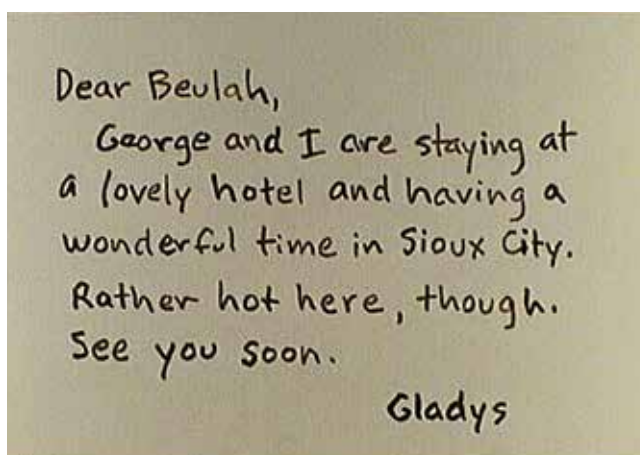 Dear Beulah,
George and I are staying at
a lovely hotel and having a
wonderful time in Sioux City.
Rather hot here, though.
See you soon.
Gladys